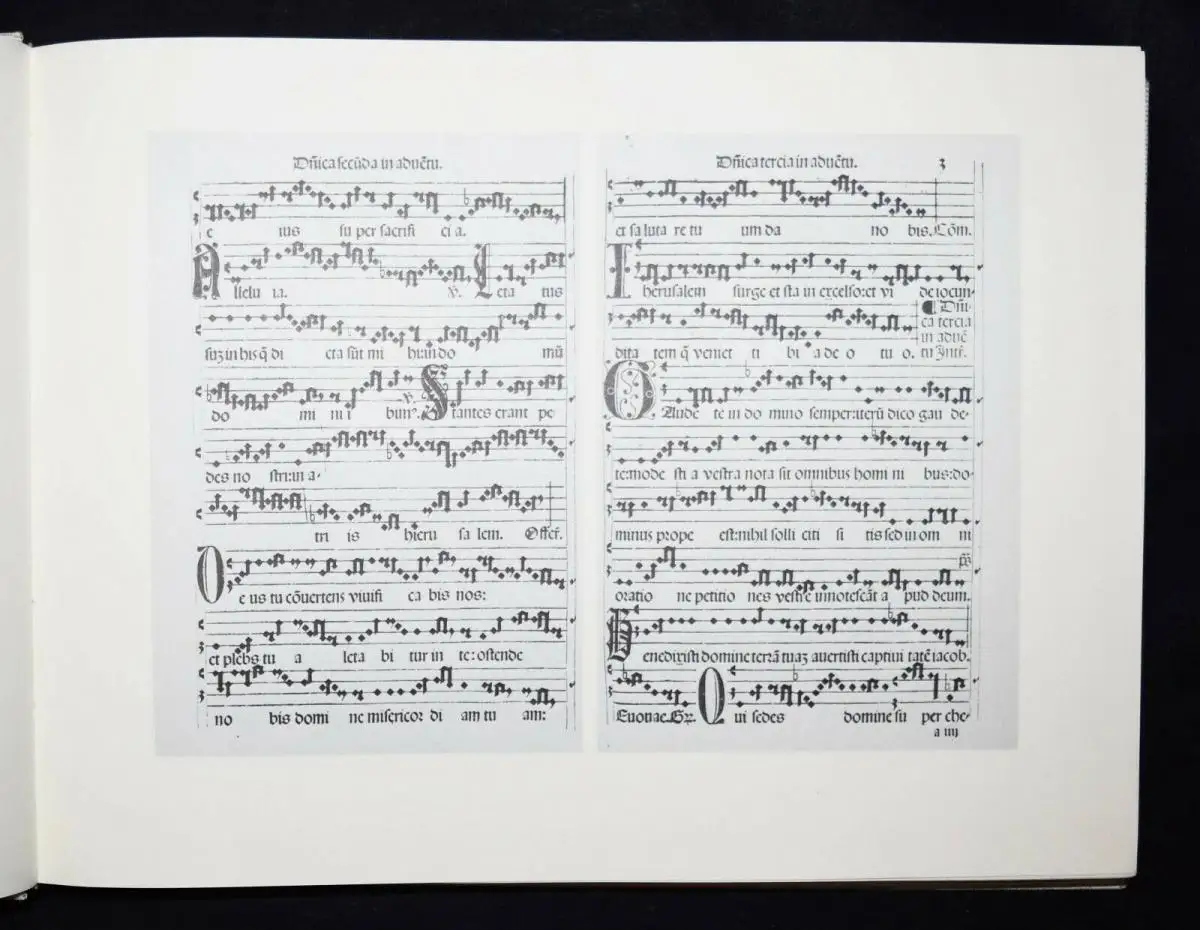 Dñica secũda in aduẽtu.
e ius su per sacrifi ci a.
Allelu ia. V. Leta tus
sũʒ in his q̃ di cta sũt mi hi:in do mũ
do mi ni i bim⁹. V. Stantes erant pe
des no stri:in a
tri is hieru sa lem. Offer̃.
Oe us tu cõuertens viuifi ca bis nos:
et plebs tu a leta bi tur in te:ostende
no bis domi ne misericor di am tu am:
Dñica tercia in aduẽtu. 3
et sa luta re tu um da no bis. Cõm.
Iherusalem surge et sta in excelso:et vi de iocun-
¶ Dñi-
ca tercia
in aduẽ
dita tem q̃ veniet ti bi a de o tu o. tu Intr̃.
GAude te in do mino semper:iterũ dico gau de-
te:mode sti a vestra nota sit omnibus homi ni bus:do-
minus prope est:nihil solli citi si tis sed in om ni
ps̃
oratio ne petitio nes vestre innotescãt a pud deum.
Benedixisti domine terrã tuaʒ auertisti captiui tatẽ iacob.
Euouae. Gr̃. Qui sedes domine su per che-
a iiij